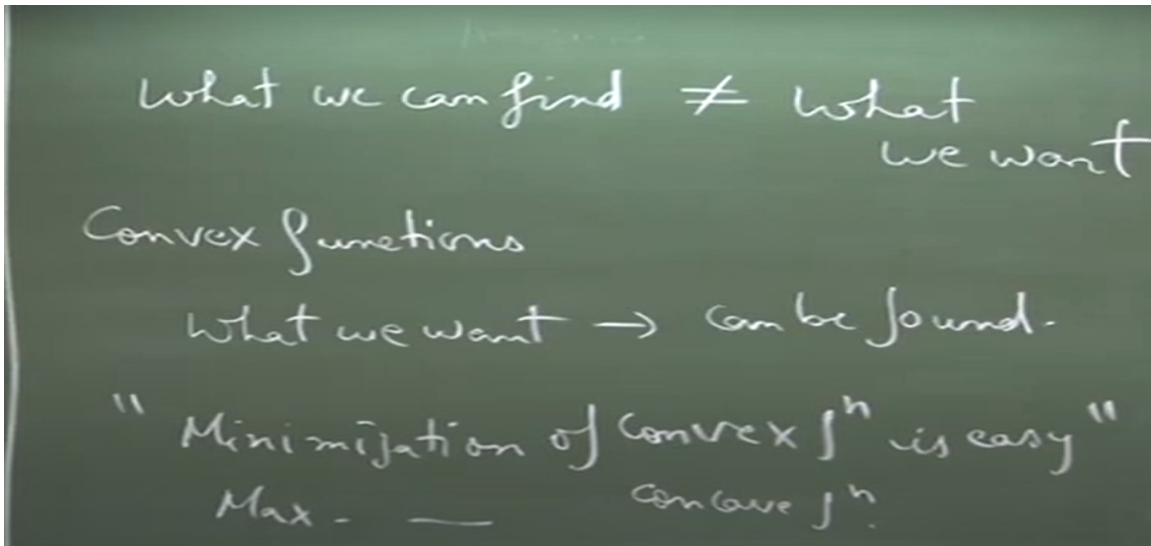 What we can find ≠ What
we want
Convex functions
What we want → can be found.
" Minimization of convex fⁿ is easy "
Max. — concave fⁿ.